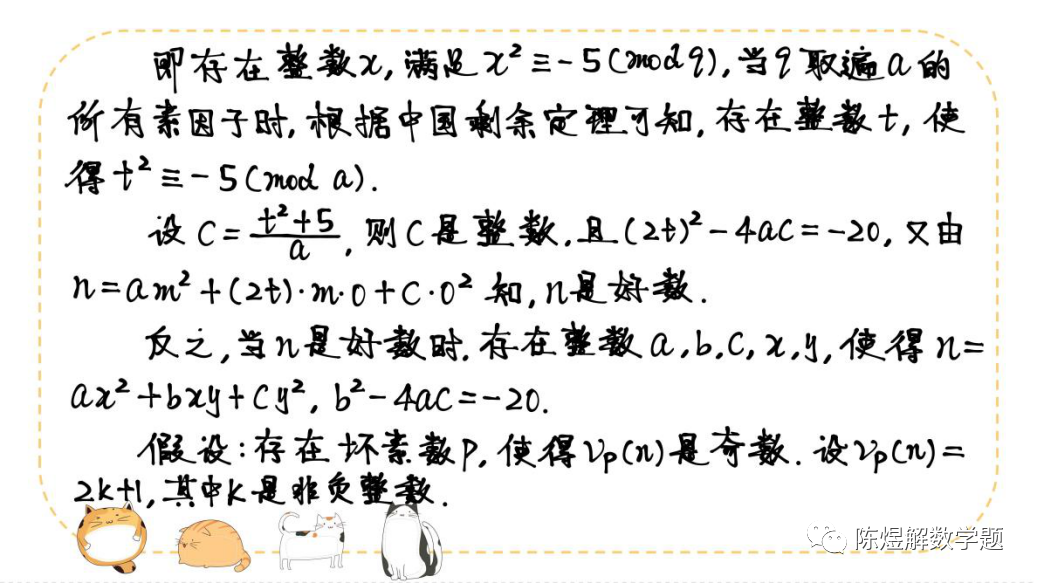 即存在整数x,满足x²≡-5(modq),当q取遍a的
所有素因子时,根据中国剩余定理可知,存在整数t,使
得t²≡-5(mod a).
设C=\frac{t²+5}{a},则C是整数,且(2t)²-4ac=-20,又由
n=am²+(2t)·m·0+C·0²知,n是好数.
反之,当n是好数时,存在整数a,b,c,x,y,使得n=
ax²+bxy+cy²,b²-4ac=-20.
假设:存在坏素数p,使得νp(n)是奇数.设νp(n)=
2k+1,其中k是非负整数.
陈煜解数学题